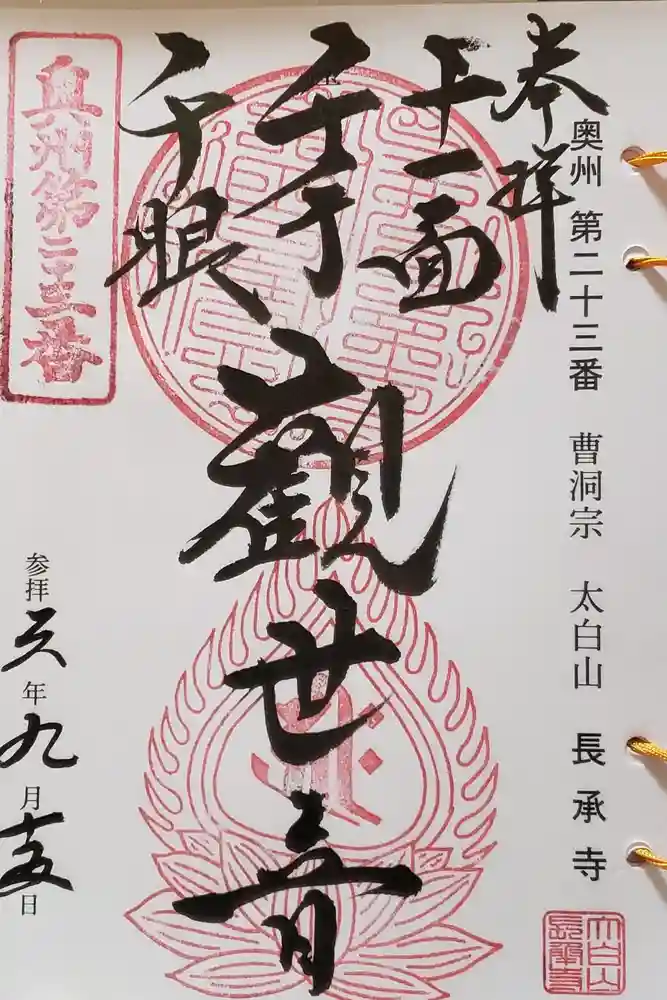 奉拝
奥州 第二十三番 曹洞宗 太白山 長承寺
十一面
千手
千眼
觀世音
奥州第二十三番
参拝 元年九月十五日
太白山
長承寺